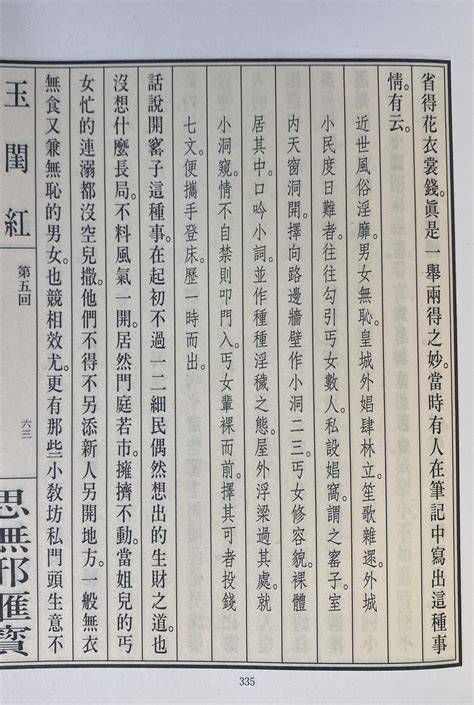 省得花衣裳錢。眞是一舉兩得之妙。當時有人在筆記中寫出這種事
情。有云。
近世風俗淫靡。男女無恥。皇城外娼肆林立。笙歌雜遝。外城
小民度日難者。往往勾引丐女數人。私設娼窩。謂之窰子。室
內天窗洞開。擇向路邊牆壁作小洞二三。丐女修容貌。裸體
居其中。口吟小詞。並作種種淫穢之態。屋外浮梁過其處。就
小洞窺。情不自禁。則叩門入。丐女輩裸而前。擇其可者投錢
七文。便攜手登床。歷一時而出。
話說開窰子這種事。在起初不過一二細民偶然想出的生財之道。也
沒想什麼長局。不料風氣一開。居然門庭若市。擁擠不動。當姐兒的丐
女忙的連溺都沒空兒撒。他們不得不另添新人。另開地方。一般無衣
無食又兼無恥的男女。也競相效尤。更有那些小敎坊私門頭生意不
玉閨紅
第五回
六三
思無邪匯寶
335